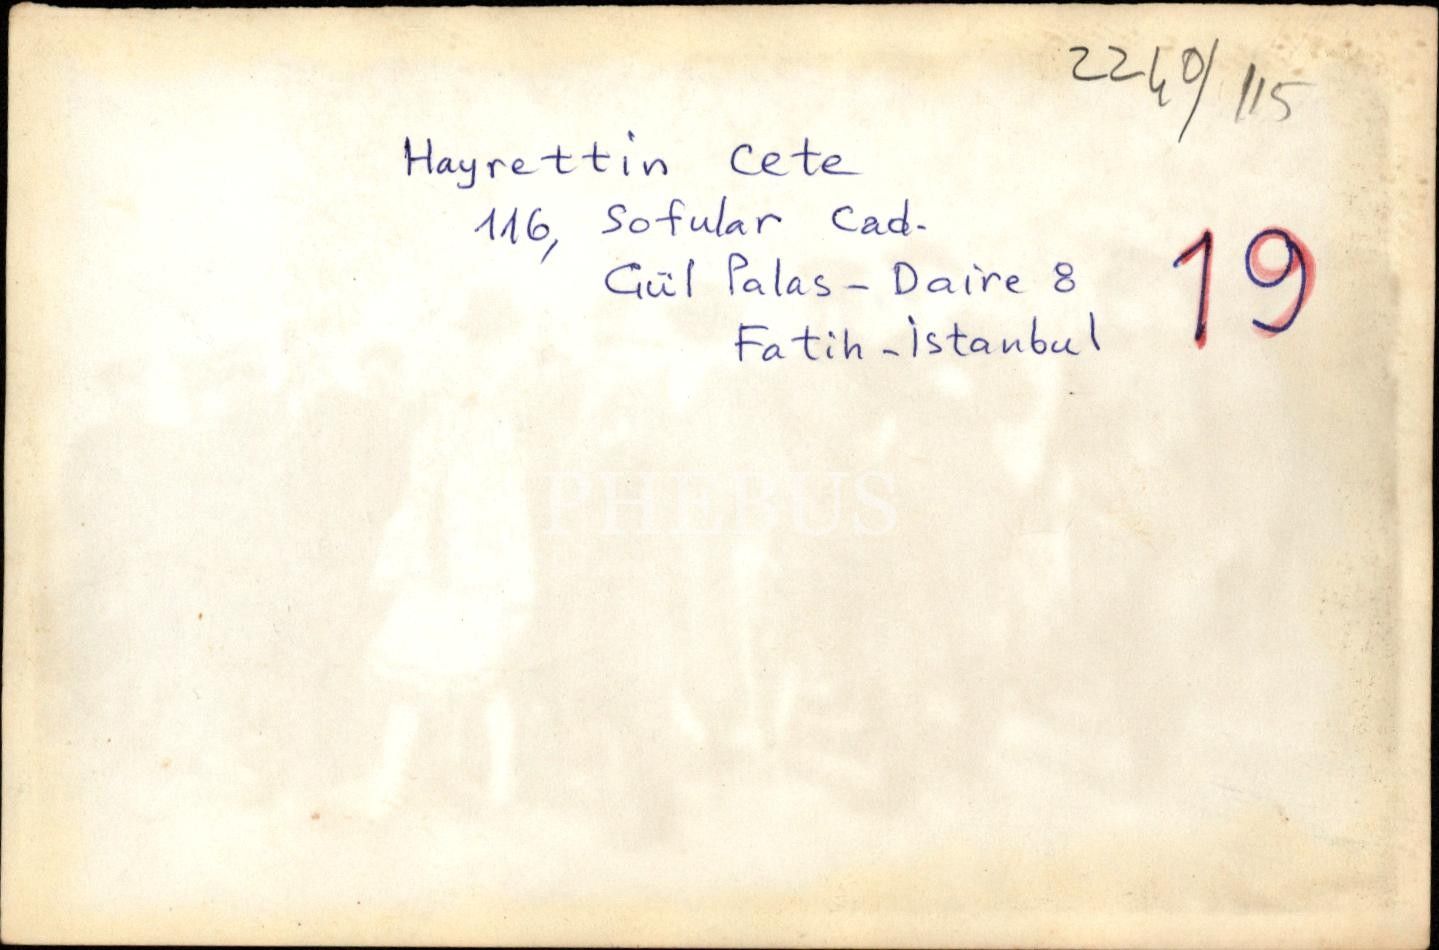 2240/115
Hayrettin Cete
116, Sofular Cad.
Gül Palas - Daire 8
Fatih - İstanbul
19
PHEBUS